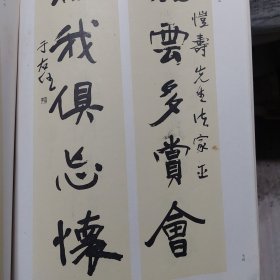 愷壽先生法家正
雲多賞會
我俱忘懷
于右任